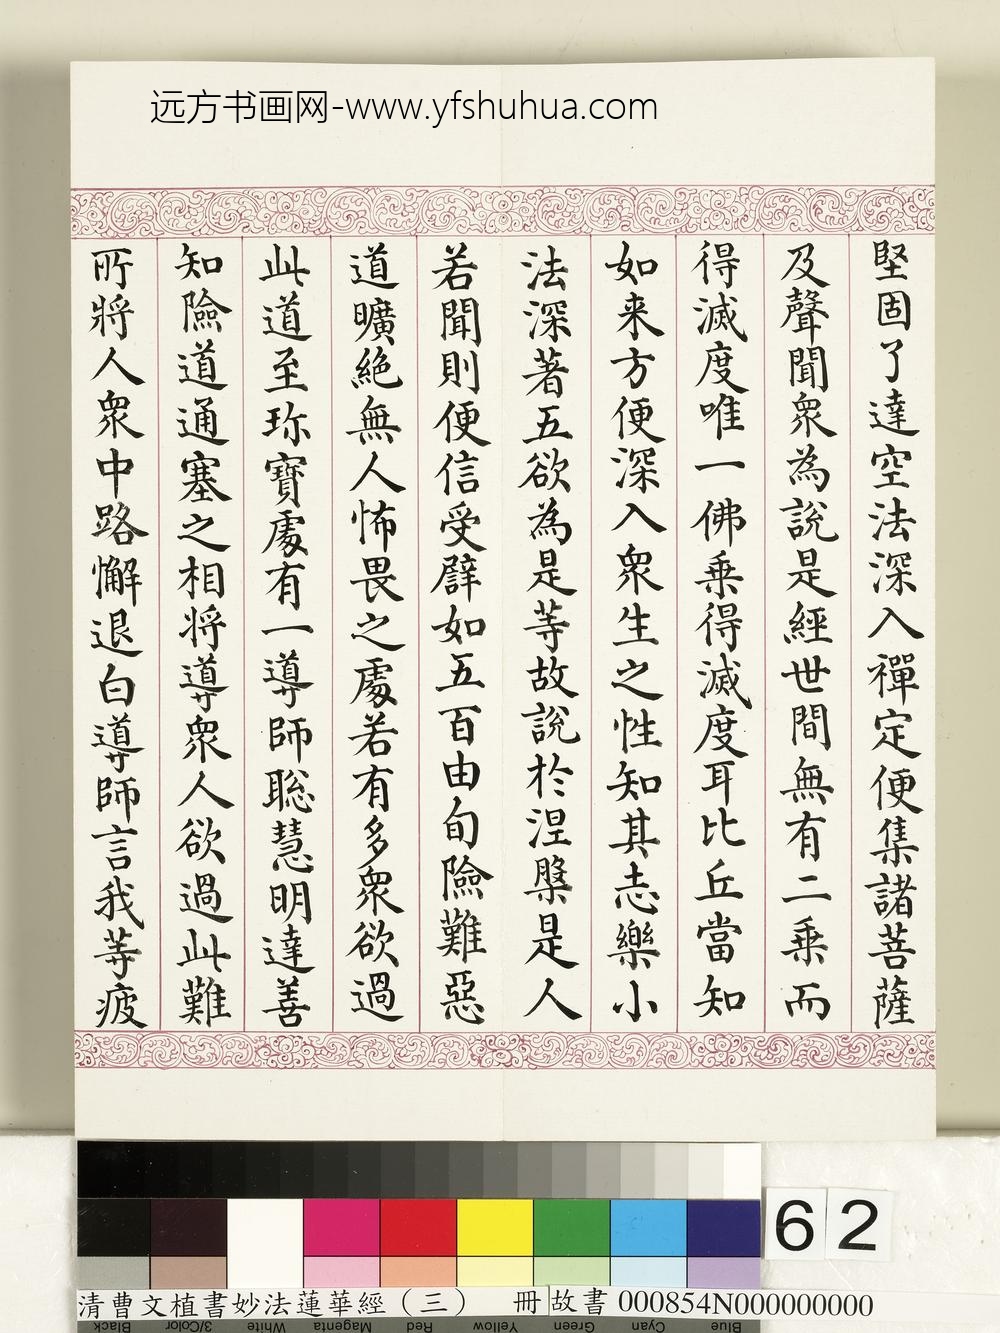 远方书画网-www.yfshuhua.com
堅固了達空法深入禪定便集諸菩薩
及聲聞眾為說是經世間無有二乗而
得滅度唯一佛乗得滅度耳比丘當知
如来方便深入眾生之性知其志樂小
法深著五欲為是等故說於涅槃是人
若聞則便信受譬如五百由旬險難惡
道曠絕無人怖畏之處若有多眾欲過
此道至珎寶處有一導師聡慧明達善
知險道通塞之相将導眾人欲過此難
所将人眾中路懈退白導師言我等疲
62
清曹文植書妙法蓮華經（三） 冊 故書 000854N000000000
Black 3/Color White Magenta Red Yellow Green Cyan Blue